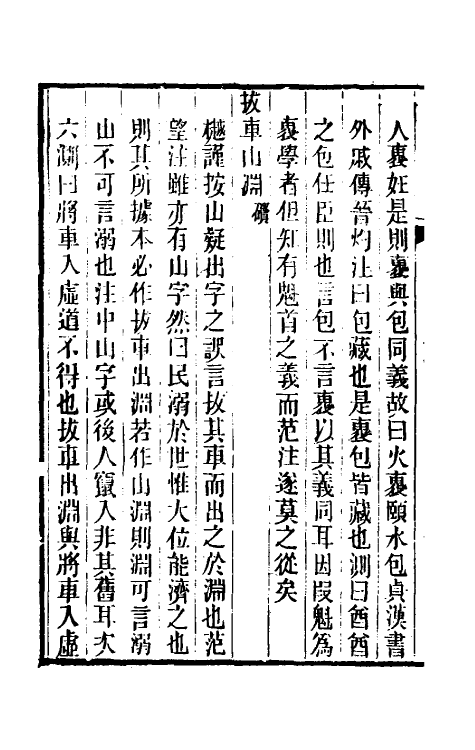 人褢妊是則褢與包同義故曰火褢頤水包貞漢書
外戚傳晉灼注曰包藏也是褢包皆藏也測曰酋酋
之包任臣則也言包不言褢以其義同耳因叚魁為
褢學者但知有魁首之義而范注遂莫之從矣
拔車山淵 礥
樾謹按山疑出字之誤言拔其車而出之於淵也范
望注雖亦有山字然曰民溺於世惟大位能濟之也
則其所據本必作拔車出淵若作山淵則淵可言溺
山不可言溺也注中山字或後人竄入非其舊耳次
六測曰將車入虛道不得也拔車出淵與將車入虛